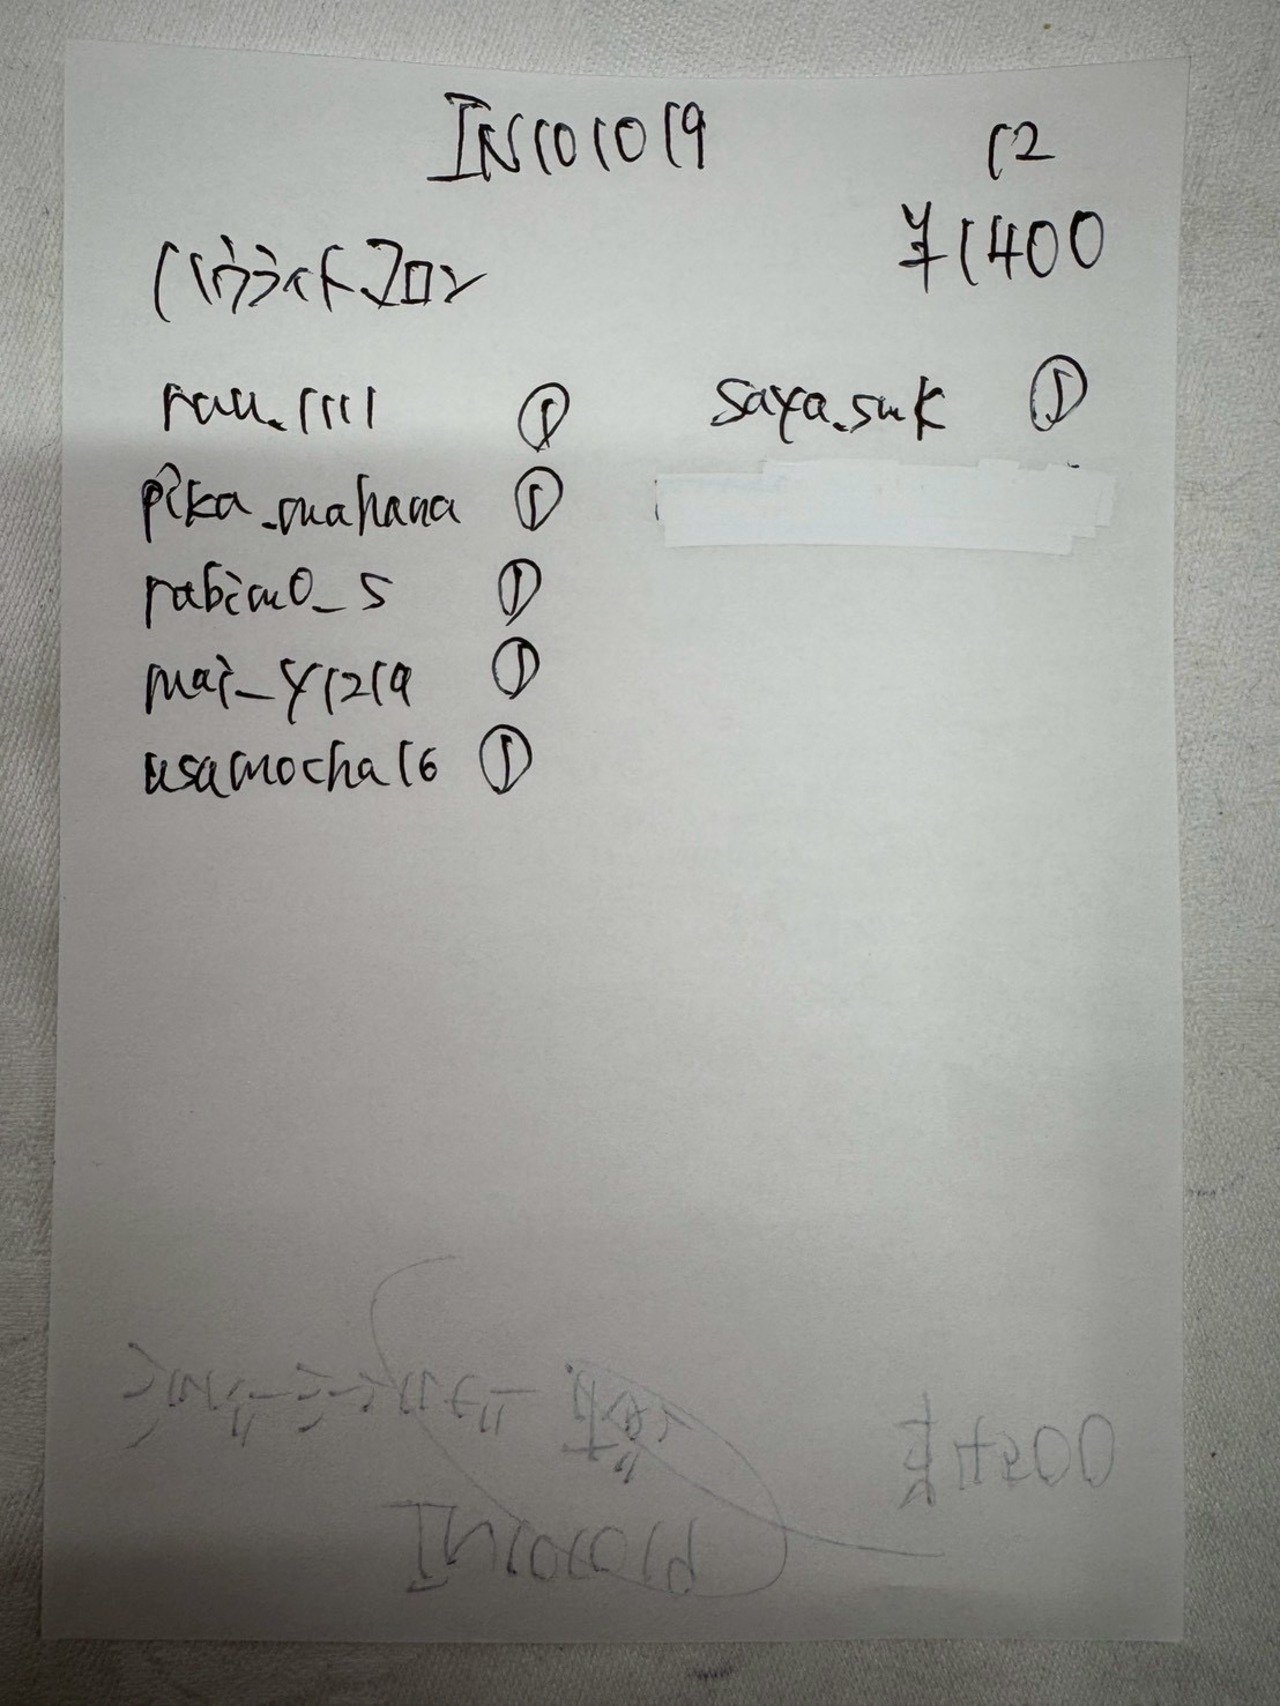 IN101019
12
¥1400
ハウライトフロン
rau_1111 ①
pika_mahana ①
rabimo_s ①
mai_y1219 ①
usamocha16 ①
saya_smk ①